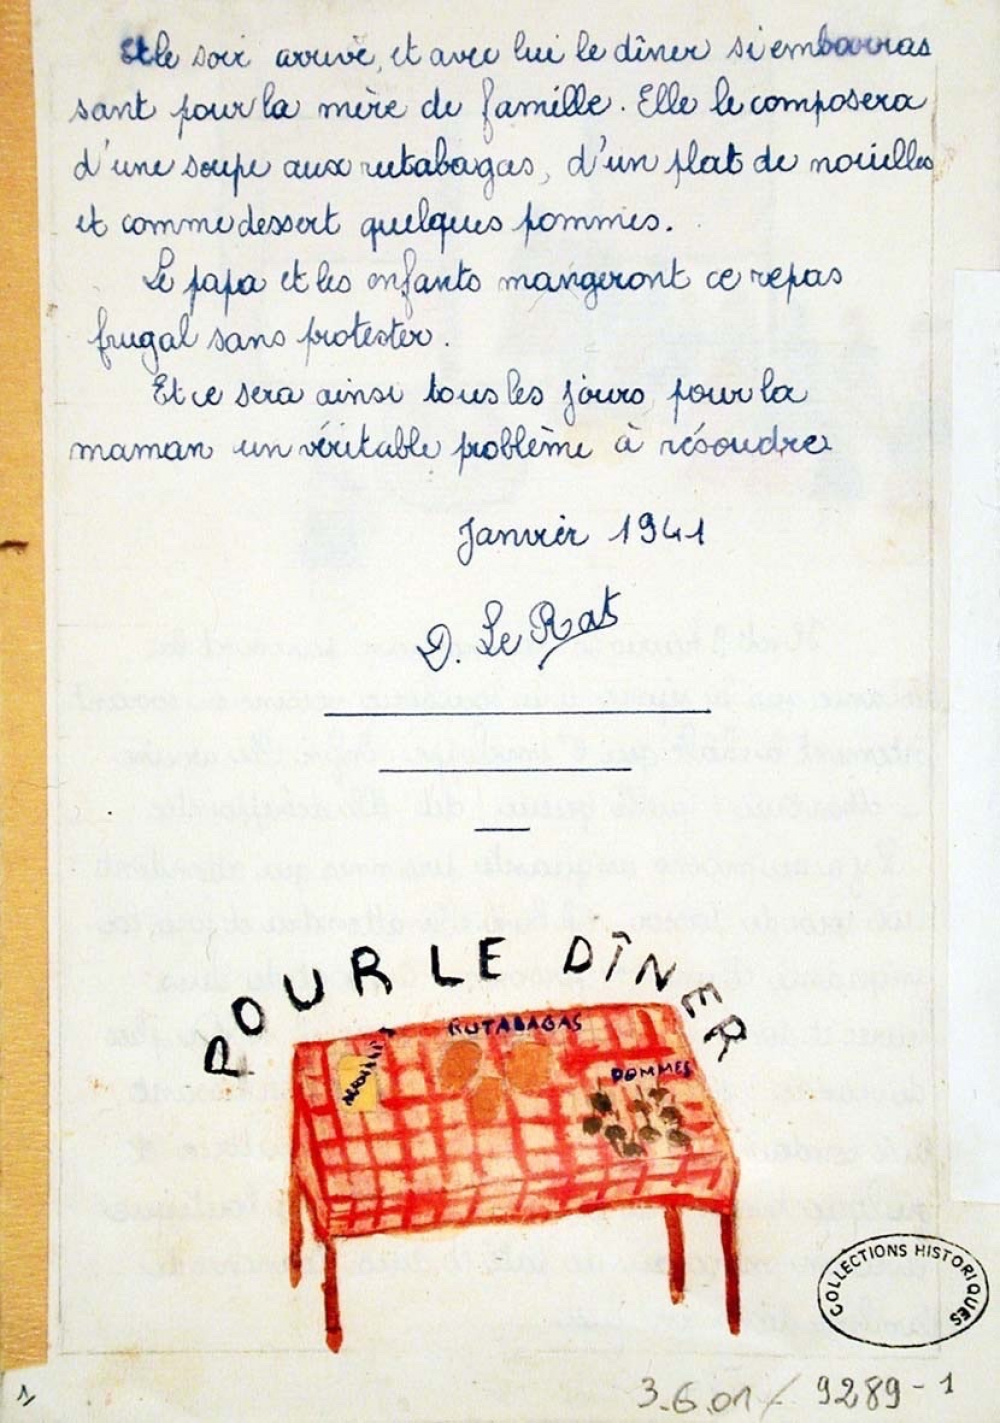 Et le soir arrive, et avec lui le dîner si embarras
sant pour la mère de famille. Elle le composera
d'une soupe aux rutabagas, d'un plat de nouilles
et comme dessert quelques pommes.
Le papa et les enfants mangeront ce repas
frugal sans protester.
Et ce sera ainsi tous les jours pour la
maman un véritable problème à résoudre
Janvier 1941
D. Le Rat
POUR LE DÎNER
RUTABAGAS
POMMES
COLLECTIONS HISTORIQUES
3.6.01 / 9289-1